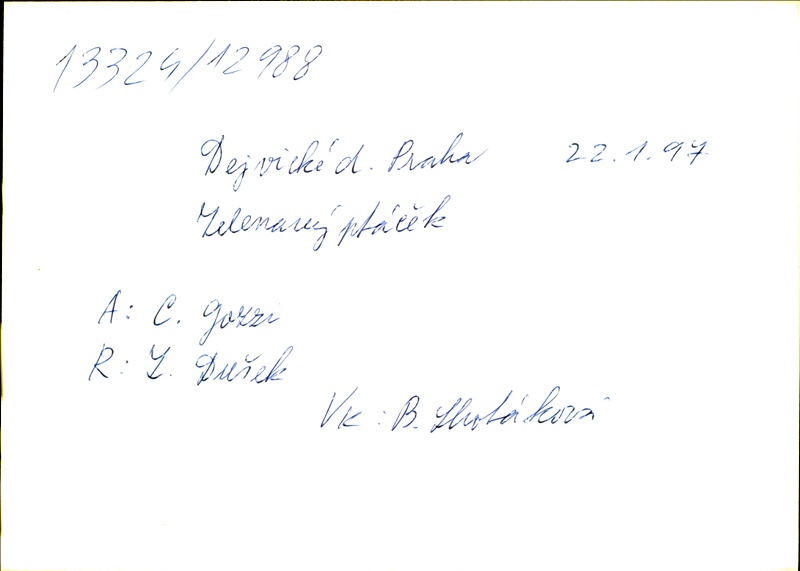 13324/12988
Dejvické d. Praha 22.1.97
Zelenavý ptáček
A: C. Gozzi
R: Z. Dušek
Vk: B. Lhotáková